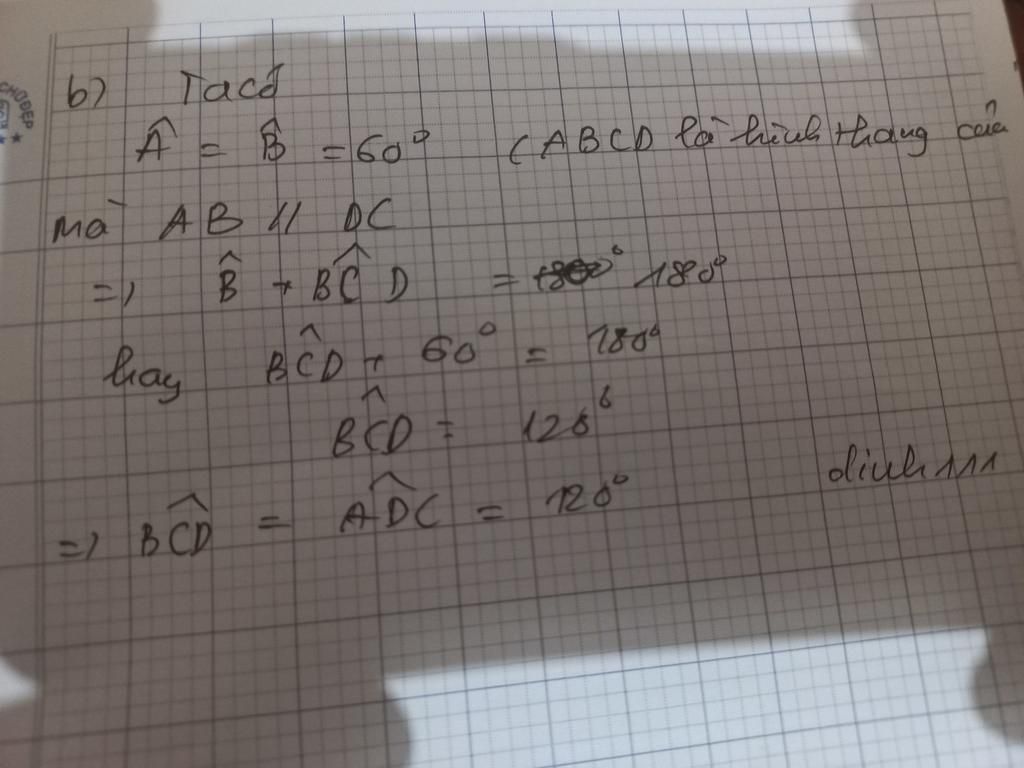 b) Ta có
Â = B̂ = 60° (ABCD là hình thang cân
mà AB // DC
=> B̂ + BĈD = 180°
hay BĈD + 60° = 180°
BĈD = 120°
dinh111
=> BĈD = AD̂C = 120°